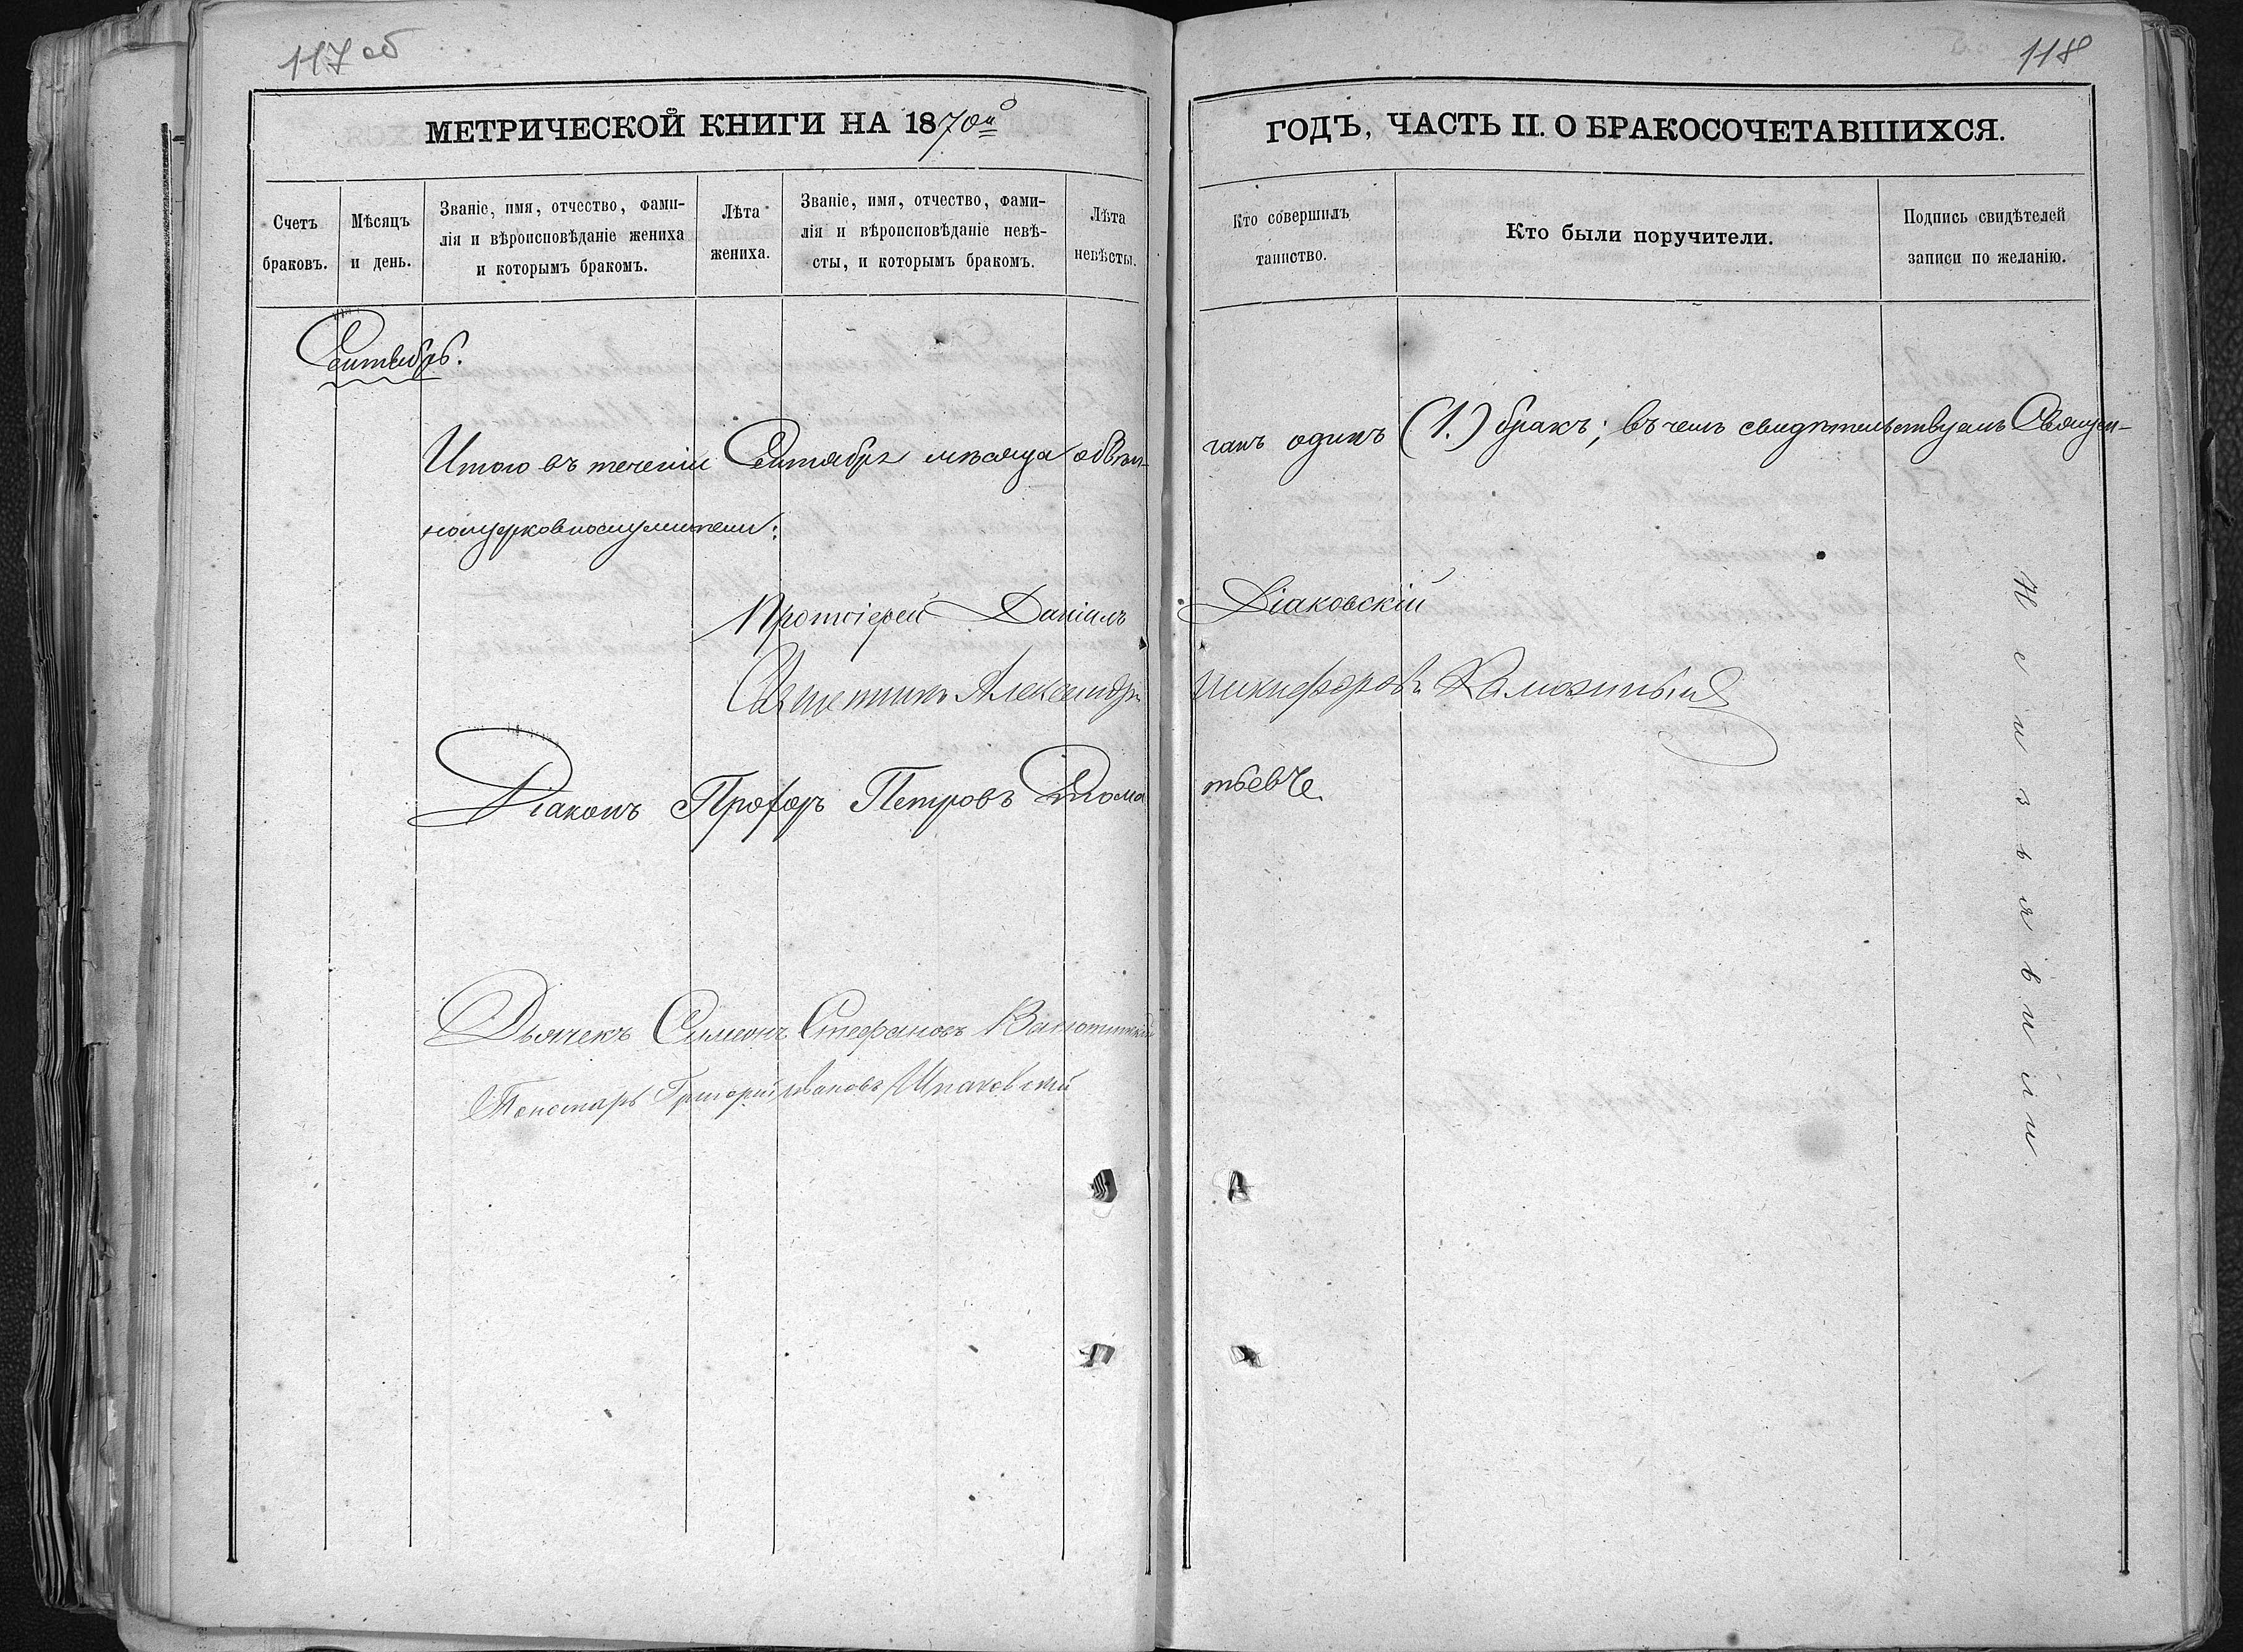 117 об
118
МЕТРИЧЕСКОЙ КНИГИ НА 1870й
ГОДЪ, ЧАСТЬ II. О БРАКОСОЧЕТАВШИХСЯ.
Счетъ
браковъ.
Мѣсяцъ
и день.
Званіе, имя, отчество, фами-
лія и вѣроисповѣданіе жениха
и которымъ бракомъ.
Лѣта
жениха.
Званіе, имя, отчество, фами-
лія и вѣроисповѣданіе невѣ-
сты, и которымъ бракомъ.
Лѣта
невѣсты.
Кто совершилъ
таинство.
Кто были поручители.
Подпись свидѣтелей
записи по желанію.
Сентябрь.
Итого въ теченіи Сентября мѣсяца обвѣн-
чанъ одинъ (1.) бракъ; въ чемъ свидѣтельствуемъ Священ-
ноцерковнослужители:
Протоіерей Даніилъ Діаковскій
Священникъ Александръ Никифоровъ
Діаконъ Прохоръ Петровъ
Дьячекъ Симеонъ Стефановъ
Пономарь Григорій Ивановъ
Не изъявили.